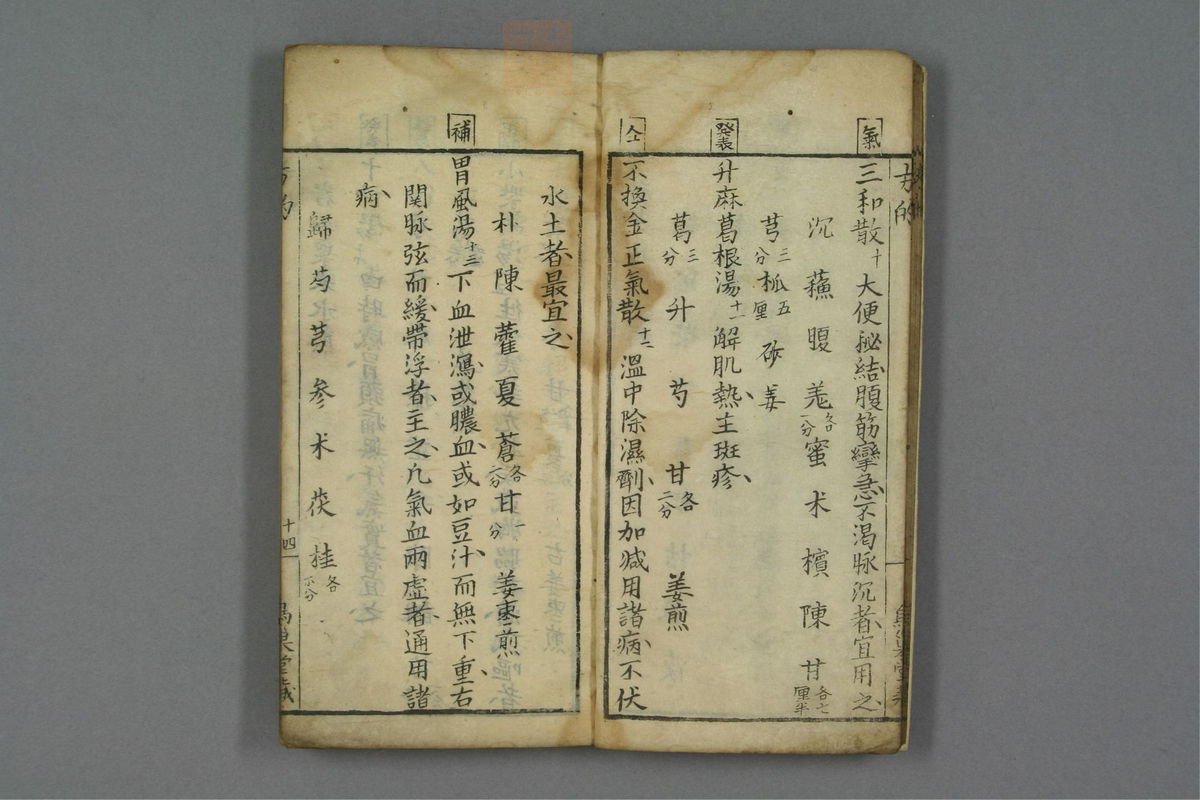 方的
氣
三和散十 大便秘結腹筋攣急不渇脉沉者宜用之
沉 蘓 腹 羗各一分 蜜 术 檳 陳 甘各七厘半
芎三分 枛五厘 砂 姜
発表
升麻葛根湯十一 解肌熱主斑疹
葛三分 升 芍 甘各二分 姜煎
仝
不換金正氣散十二 温中除濕劑因加减用諸病不伏
水土者最宜之
朴 陳 藿 夏 蒼各一分 甘一分 姜棗煎
補
胃風湯十三 下血泄瀉或膿血或如豆汁而無下重右
関脉弦而緩帶浮者主之凡氣血兩虚者通用諸
病
歸 芍 芎 参 术 茯 桂各分
方的
十四